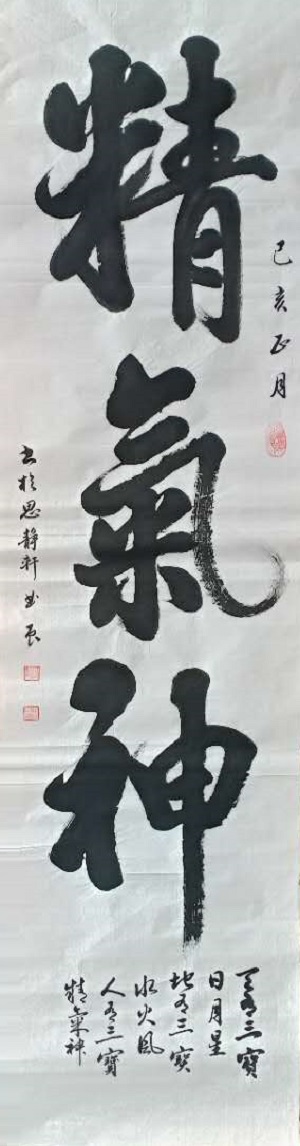 精氣神
己亥正月
天有三寶
日月星
地有三寶
水火風
人有三寶
精氣神
書於思靜軒